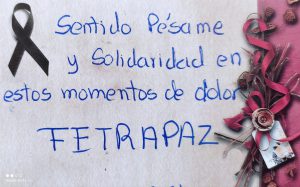 Sentido Pésame
y Solidaridad en
estos momentos de dolor
FETRAPAZ